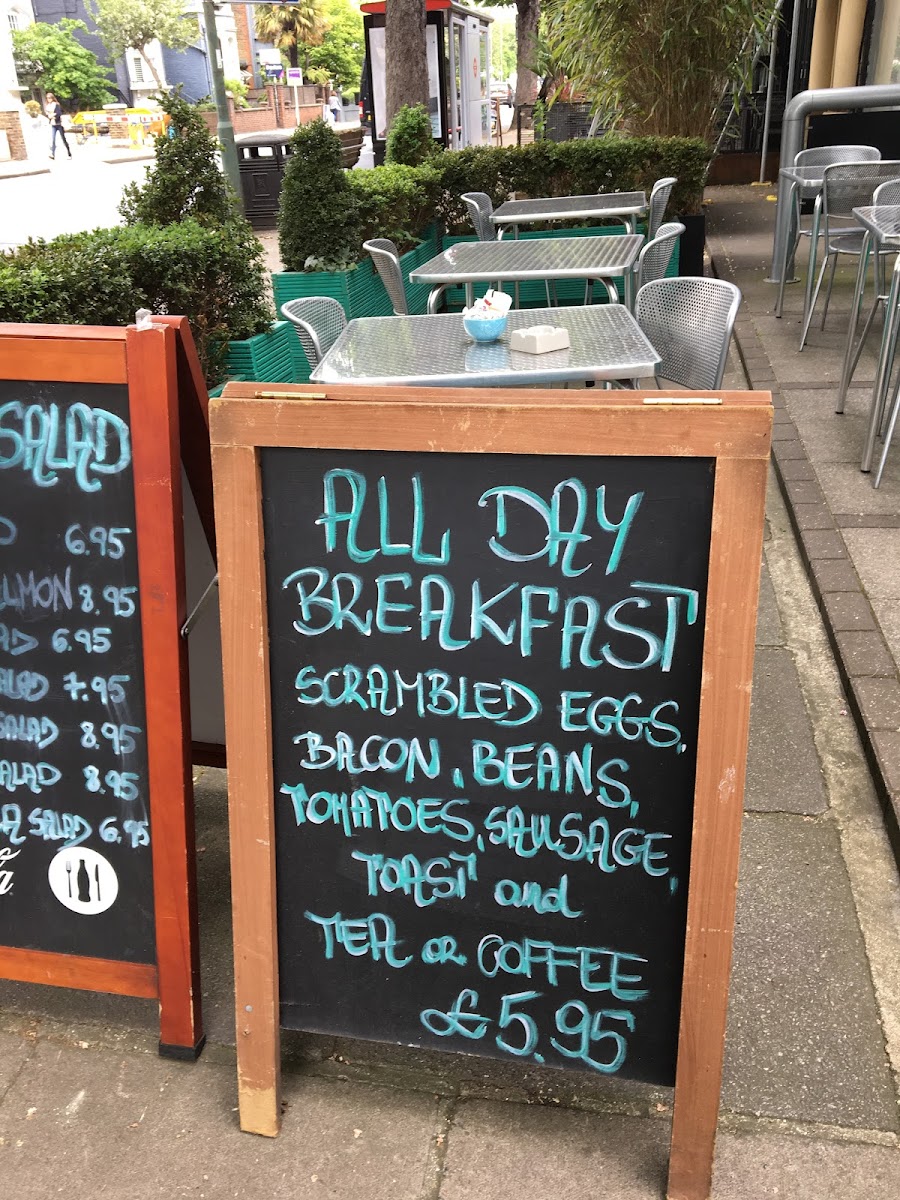 SALAD
6.95
8.95
6.95
7.95
SALAD 8.95
8.95
SALAD 6.95
ALL DAY
BREAKFAST
SCRAMBLED EGGS,
BACON, BEANS,
TOMATOES, SAUSAGE,
TOAST and
TEA or COFFEE
£5.95